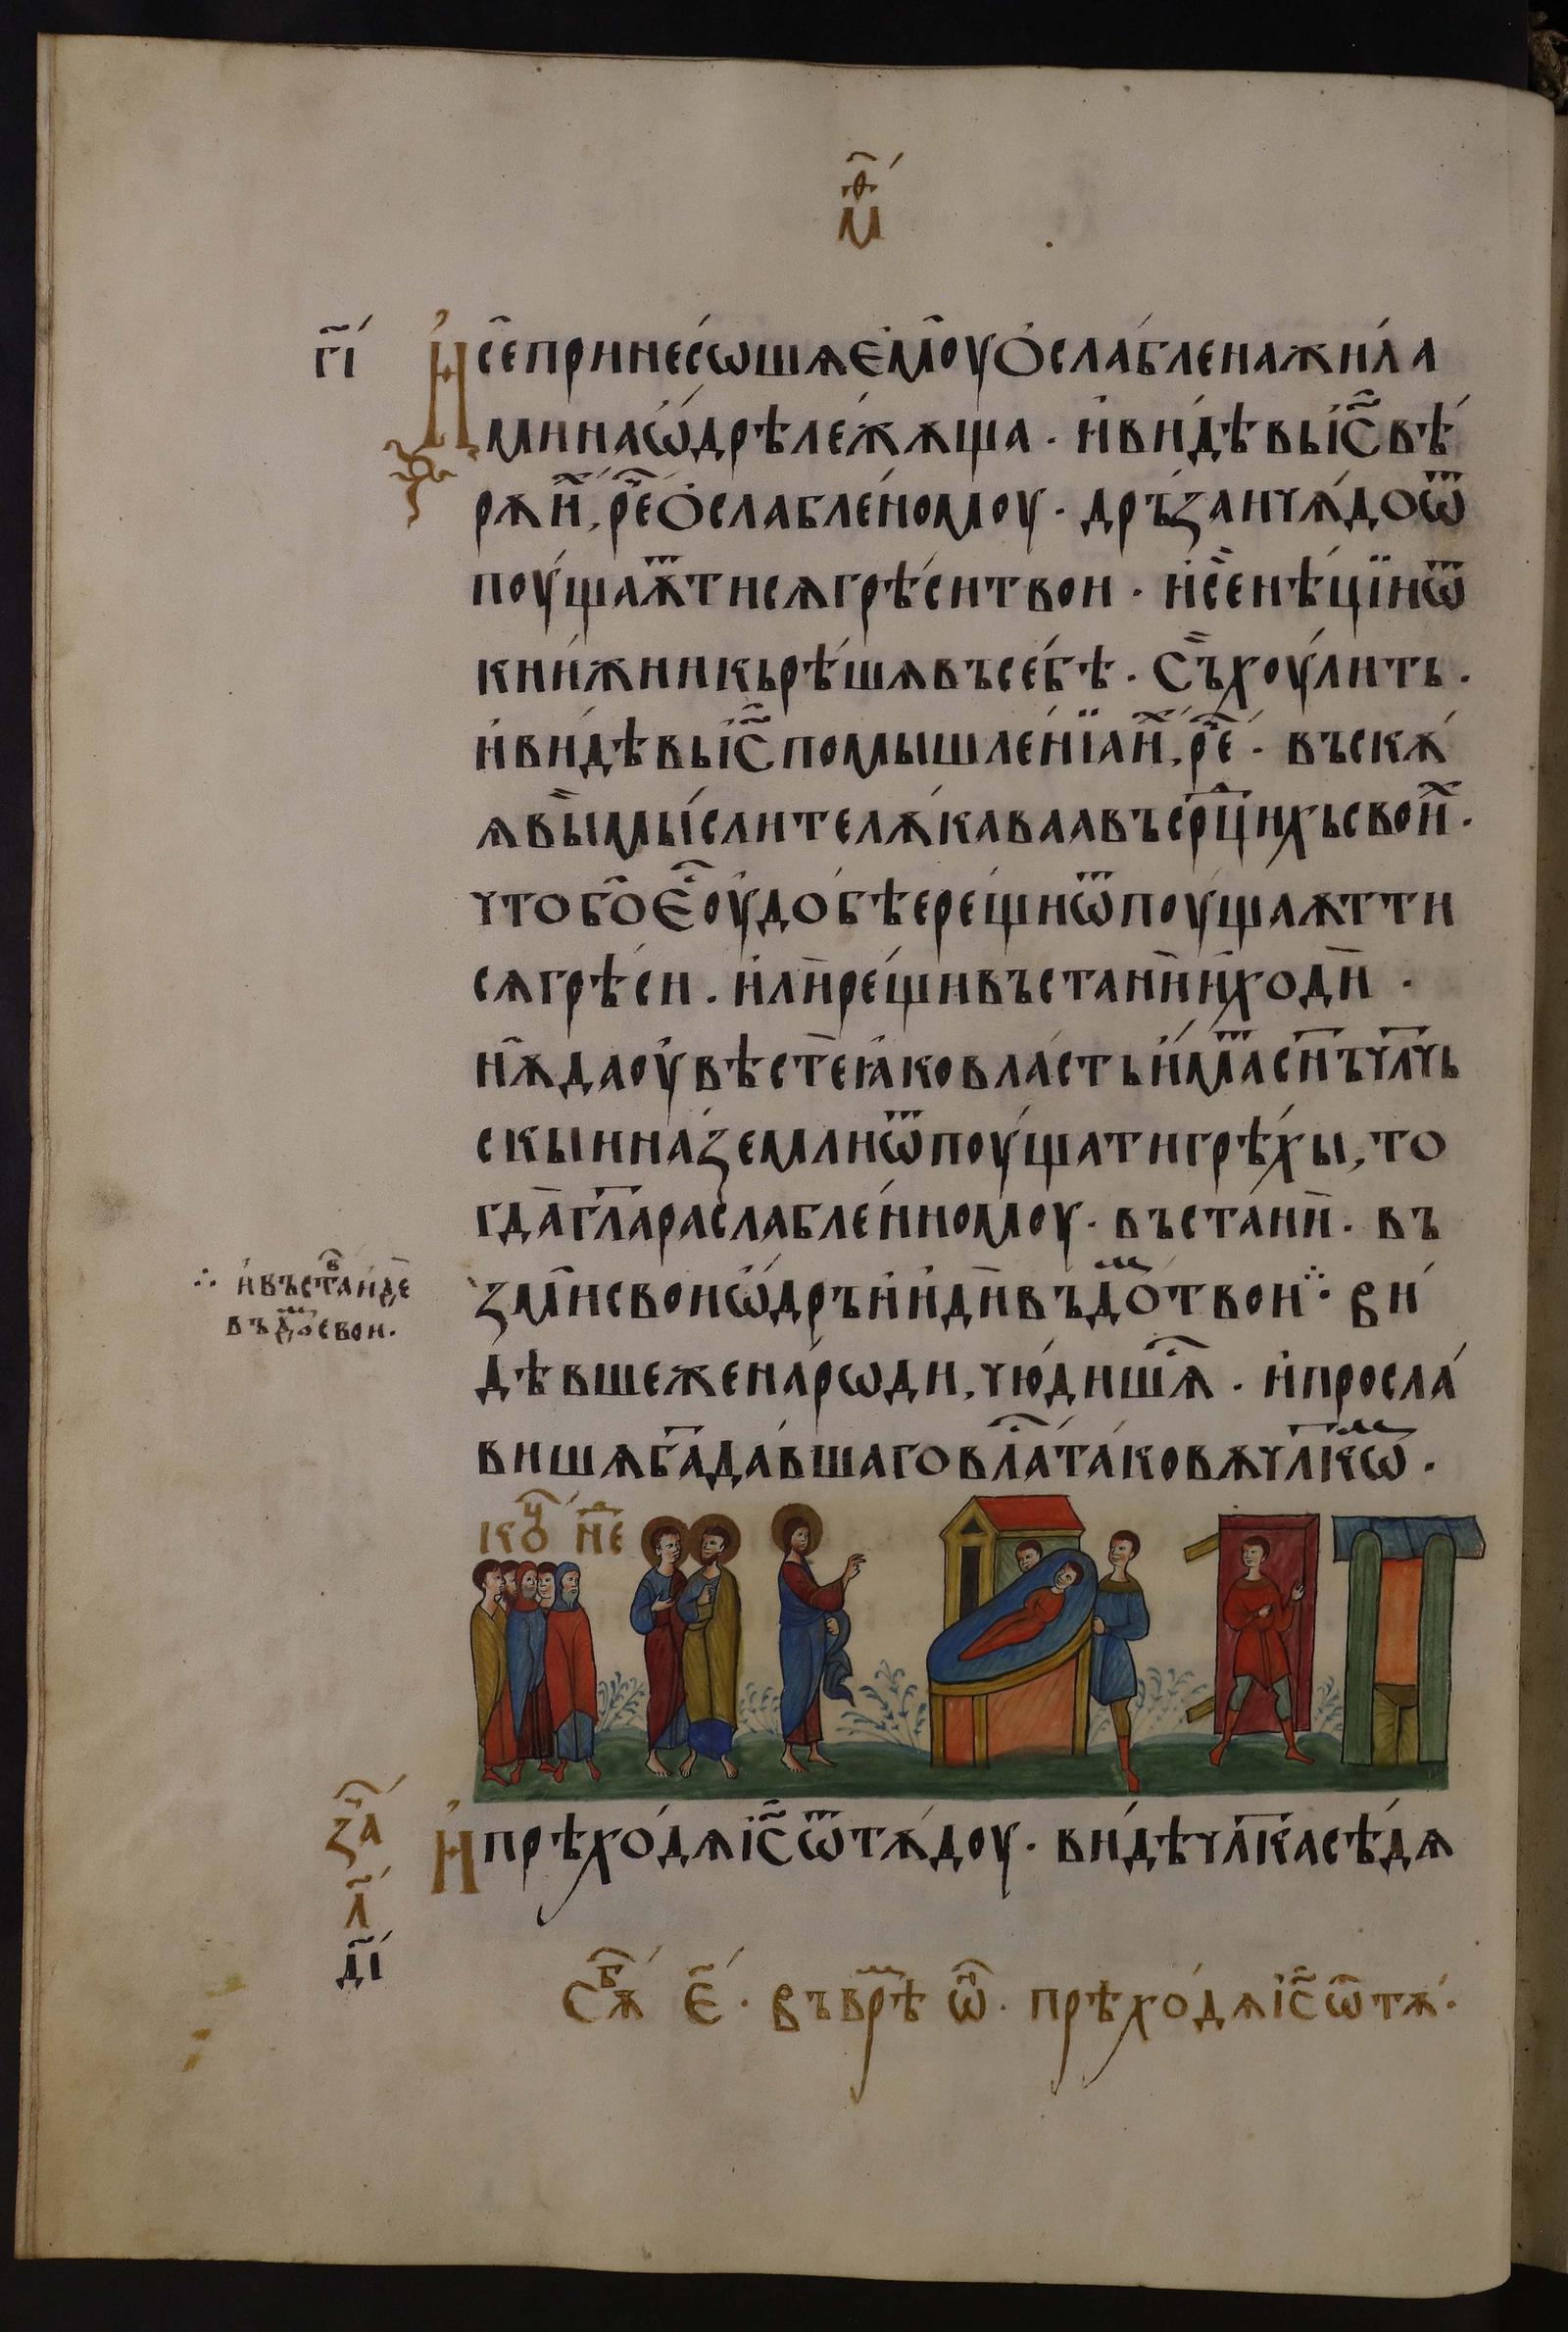 м҃ⷴ
г҃і
И се҆ принесѡшѧ ємоу ѻслаблена жила
ми на ѡдрѣ лежѫща · и видѣвы іс҃ вѣ
рѫ иⷯ, реⷱ ѻслабленомоу · дръзаи чѧдо ѿ
поущаѫⷮтисѧ грѣси твои · и се нѣции ѿ
книжникь рѣшѧ въ себѣ · съ хоулить ·
и видѣвы іс҃ помышленїа иⷯ, реⷱ · въскѫ
ѧ вы мыслите лѫкаваа въ срⷣцихь своиⷯ ·
что бо єⷭ оудобѣе рещи ѿпоущаѫт ти
сѧ грѣси · или рещи въстани и ходи ·
нѫ да оувѣсте ꙗко власть имаⷮ сн҃ъ чл҃чь
скыи на земли ѿпоущати грѣхы, то
гда гл҃а раслабленномоу · въстани · въ
зми свои ѡдръ и иди въ доⷨ твои ჻ ви
дѣвше же народи, чюдишѧⷭ · и просла
вишѧ б҃а давшаго влаⷭ такова чл҃кѡⷨ ·
჻ и въставⷡ иде
въ доⷨ свои ·
коⷰ неⷣ
заⷱ
л҃
д҃і
И прѣходѧ іс҃ ѿтѫдоу · видѣ чл҃ка сѣдѧ
сѫⷠ є҃ · въ врⷨѣ ѡⷩ · прѣходѧ іс҃ ѿтѫ ·